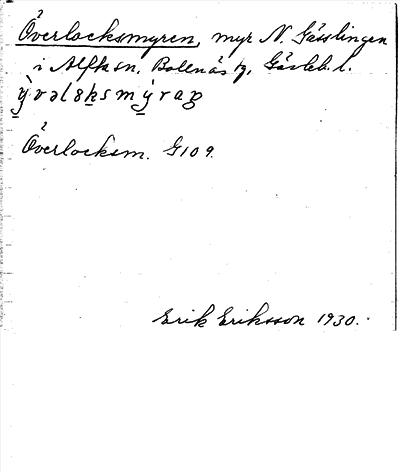 Överlocksmyren, myr N. Gässlingen
i Alfta sn, Bollnäs tg, Gävleb. l.
Överlocksm. G109.
Erik Eriksson 1930.